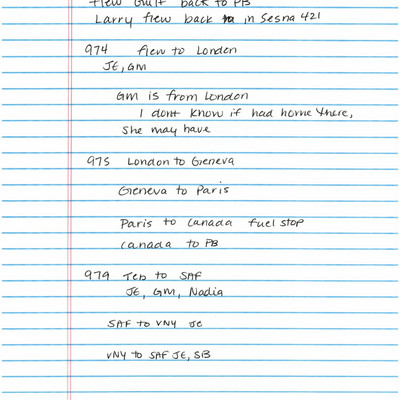 flew Gulf back to PB
Larry flew back in Sesna 421
974 flew to London
JE, GM
GM is from London
I dont know if had home there,
she may have
975 London to Geneva
Geneva to Paris
Paris to Canada fuel stop
Canada to PB
979 Teb to SAF
JE, GM, Nadia
SAF to VNY JE
VNY to SAF JE, SB